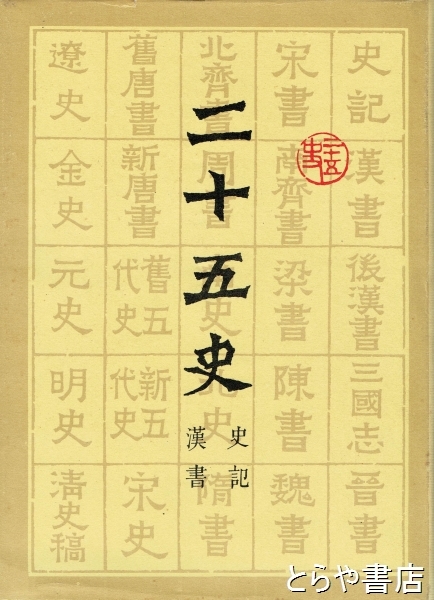 二十五史
史記
漢書
史記
漢書
後漢書
三國志
晉書
宋書
南齊書
梁書
陳書
魏書
北齊書
周書
史
北史
隋書
舊唐書
新唐書
舊五代史
新五代史
宋史
遼史
金史
元史
明史
清史稿
二十五史
とらや書店